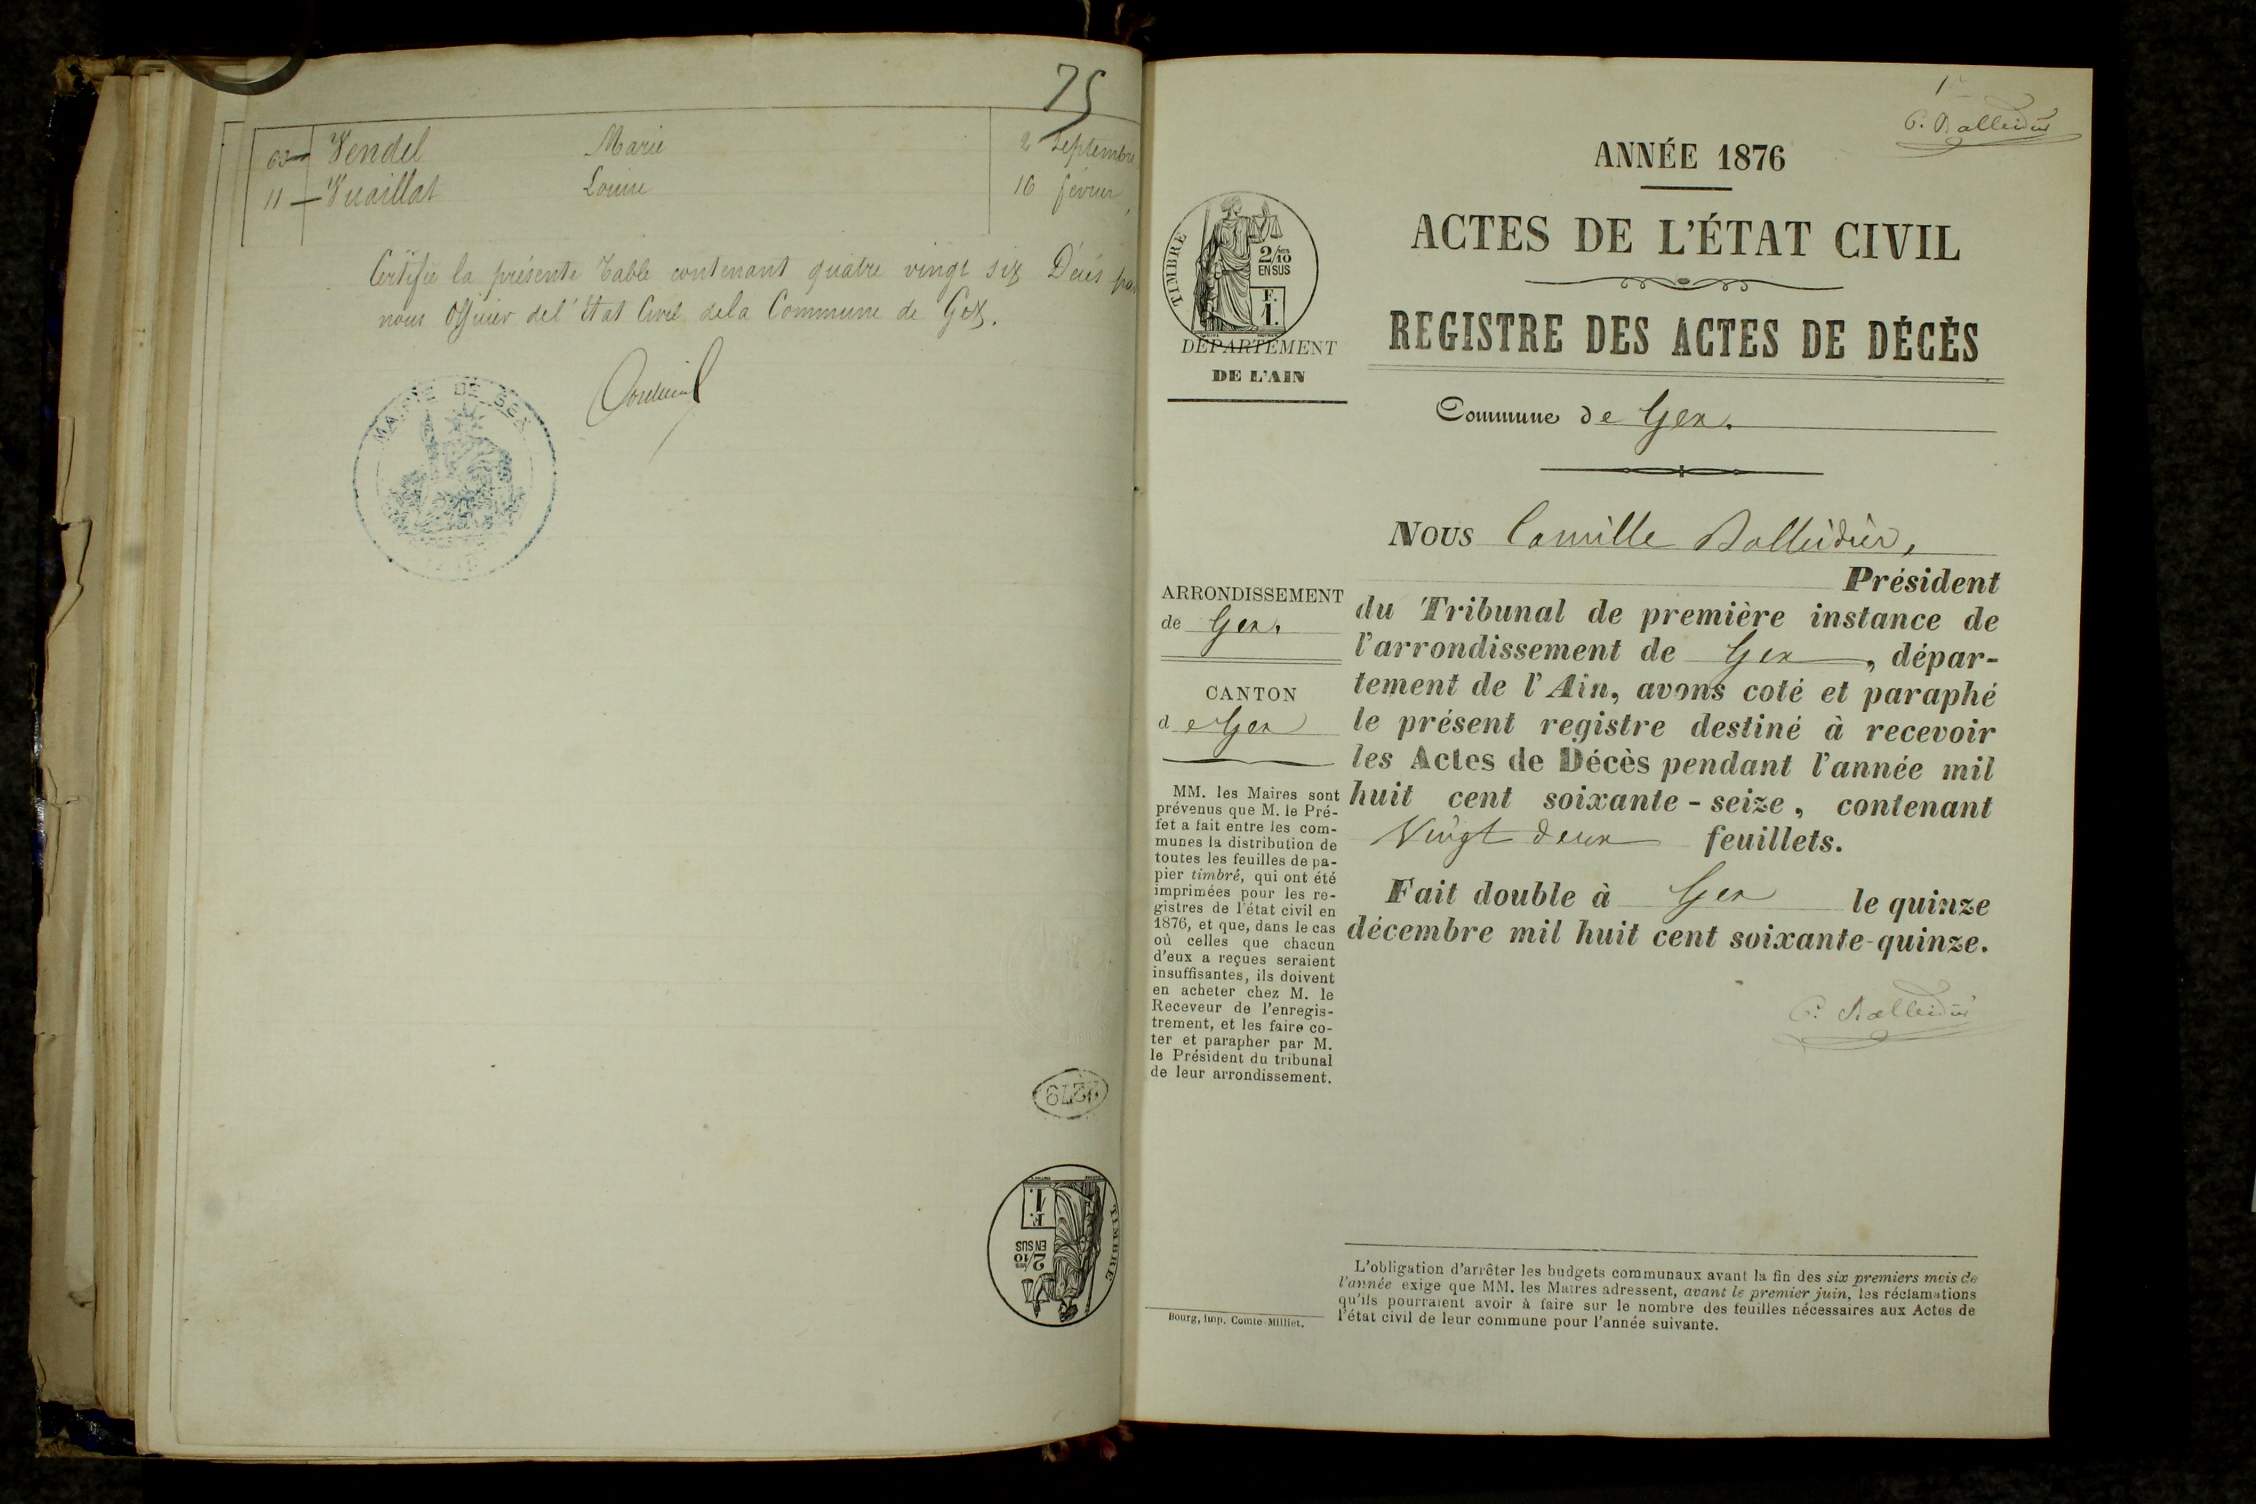 75
63 Vendel Marie 2 Septembre
11 Vuaillat Louise 16 février
Certifié la présente Table contenant quatre vingt six Décès par
nous Officier de l'Etat Civil de la Commune de Gex.
MAIRIE DE GEX
AIN
2279
TIMBRE
2/10 EN SUS
F. 1.
1er
C. Balleidier
ANNÉE 1876
ACTES DE L'ÉTAT CIVIL
REGISTRE DES ACTES DE DÉCÈS
TIMBRE
2/10
EN SUS
F.
1.
DÉPARTEMENT
DE L'AIN
Commune de Gex.
ARRONDISSEMENT
de Gex.
CANTON
de Gex
MM. les Maires sont
prévenus que M. le Pré-
fet a fait entre les com-
munes la distribution de
toutes les feuilles de pa-
pier timbré, qui ont été
imprimées pour les re-
gistres de l'état civil en
1876, et que, dans le cas
où celles que chacun
d'eux a reçues seraient
insuffisantes, ils doivent
en acheter chez M. le
Receveur de l'enregis-
trement, et les faire co-
ter et parapher par M.
le Président du tribunal
de leur arrondissement.
Bourg, imp. Comte-Milliet.
NOUS Camille Balleidier,
Président
du Tribunal de première instance de
l'arrondissement de Gex, dépar-
tement de l'Ain, avons coté et paraphé
le présent registre destiné à recevoir
les Actes de Décès pendant l'année mil
huit cent soixante-seize, contenant
Vingt deux feuillets.
Fait double à Gex le quinze
décembre mil huit cent soixante-quinze.
C. Balleidier
L'obligation d'arrêter les budgets communaux avant la fin des six premiers mois de
l'année exige que MM. les Maires adressent, avant le premier juin, les réclamations
qu'ils pourraient avoir à faire sur le nombre des feuilles nécessaires aux Actes de
l'état civil de leur commune pour l'année suivante.